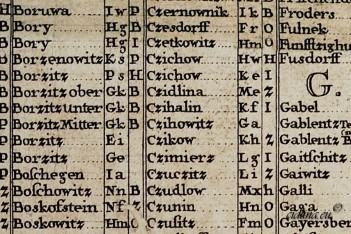 H Boruwa Iw P Czernownik Ik B Froders
B Bory Hg B Czesdorff Fr O Fulnek
B Bory Hg I Czetkowitz Hm O
B Borzenowitz Ks P Czichow Hw H Fusdorff
B Borzitz Ps H Czichow Ke I G.
B Borzitz ober Gk B Czidlina Me Z
B Borzitz unter Gk B Czihalin Kf I Gabel
P Borzitz Mitter Gk B Czihowitz Ga Gablentz
P Borzitz Ei Czikow Kh Z Gablentz
P Borzitz Ge Czimierz Lg I Gaitschitz
P Boschegen Ia Czuczitz Li Z Gaiwitz
Z Boschowitz Nn B Czudlow Mx h Galli
Z Boskofstein Nf Z Czunin Hn O Gaga
Z Boskowitz Hm O Czusitz Fm O Gayersberg
cidlina.eu